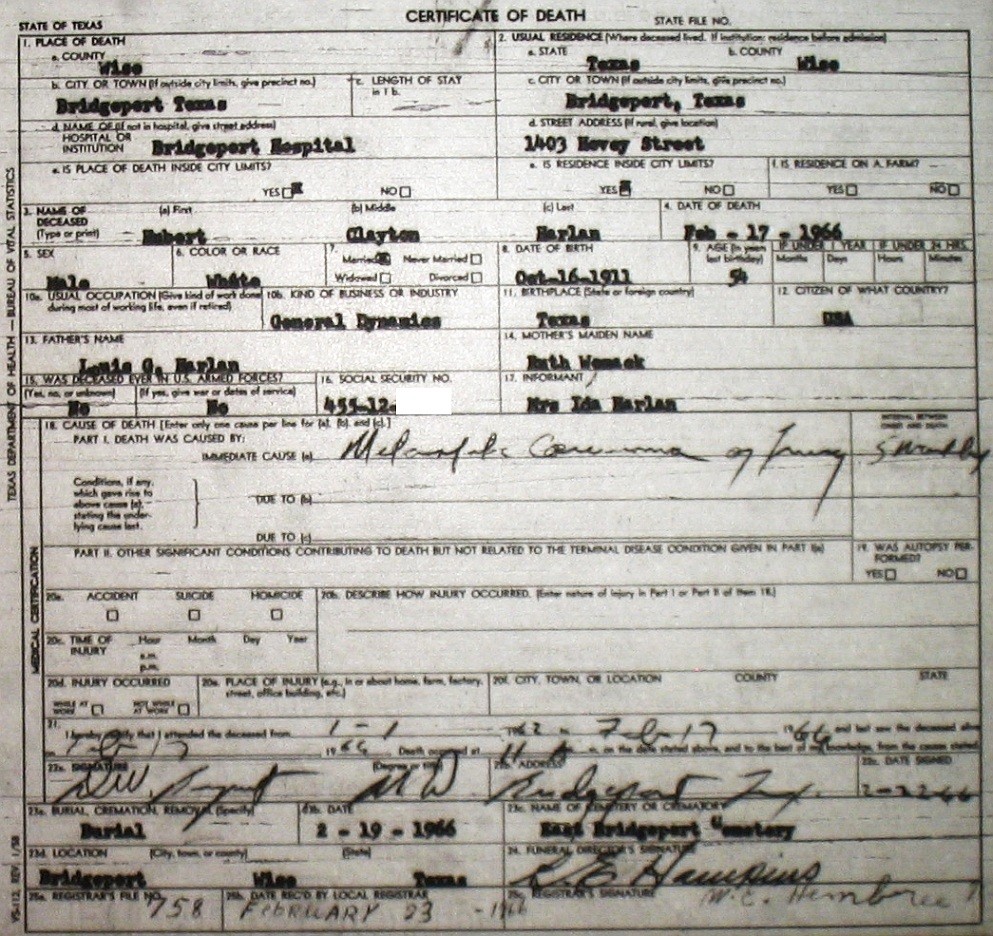 CERTIFICATE OF DEATH
STATE OF TEXAS
STATE FILE NO.
1. PLACE OF DEATH
a. COUNTY
Wise
2. USUAL RESIDENCE (Where deceased lived. If institution: residence before admission)
a. STATE
Texas
b. COUNTY
Wise
b. CITY OR TOWN (If outside city limits, give precinct no.)
Bridgeport Texas
c. LENGTH OF STAY
in 1 b.
c. CITY OR TOWN (If outside city limits, give precinct no.)
Bridgeport, Texas
d. NAME OF (If not in hospital, give street address)
HOSPITAL OR
INSTITUTION
Bridgeport Hospital
d. STREET ADDRESS (If rural, give location)
1403 Hovey Street
e. IS PLACE OF DEATH INSIDE CITY LIMITS?
YES NO
e. IS RESIDENCE INSIDE CITY LIMITS?
YES NO
f. IS RESIDENCE ON A FARM?
YES NO
3. NAME OF
DECEASED
(Type or print)
(a) First
(b) Middle
Clayton
(c) Last
Harlan
4. DATE OF DEATH
Feb - 17 - 1966
5. SEX
Male
6. COLOR OR RACE
White
7.
Married Never Married
Widowed Divorced
8. DATE OF BIRTH
Oct-16-1911
9. AGE (In years
last birthday)
54
IF UNDER 1 YEAR
Months Days
IF UNDER 24 HRS.
Hours Minutes
10a. USUAL OCCUPATION (Give kind of work done
during most of working life, even if retired)
10b. KIND OF BUSINESS OR INDUSTRY
General Dynamics
11. BIRTHPLACE (State or foreign country)
Texas
12. CITIZEN OF WHAT COUNTRY?
USA
13. FATHER'S NAME
Louis G. Harlan
14. MOTHER'S MAIDEN NAME
Ruth Womack
15. WAS DECEASED EVER IN U.S. ARMED FORCES?
(Yes, no, or unknown)
No
(If yes, give war or dates of service)
No
16. SOCIAL SECURITY NO.
455-12-
17. INFORMANT
Mrs Ida Harlan
18. CAUSE OF DEATH [Enter only one cause per line for (a), (b), and (c).]
PART I. DEATH WAS CAUSED BY:
IMMEDIATE CAUSE (a)
of
INTERVAL BETWEEN
ONSET AND DEATH
5
Conditions, if any,
which gave rise to
above cause (a),
stating the under-
lying cause last.
DUE TO (b)
DUE TO (c)
PART II. OTHER SIGNIFICANT CONDITIONS CONTRIBUTING TO DEATH BUT NOT RELATED TO THE TERMINAL DISEASE CONDITION GIVEN IN PART I(a)
19. WAS AUTOPSY PER-
FORMED?
YES NO
20a. ACCIDENT SUICIDE HOMICIDE
20b. DESCRIBE HOW INJURY OCCURRED. (Enter nature of injury in Part I or Part II of Item 18.)
20c. TIME OF
INJURY
Hour Month Day Year
a.m.
p.m.
20d. INJURY OCCURRED
WHILE AT
WORK
NOT WHILE
AT WORK
20e. PLACE OF INJURY (e.g., in or about home, farm, factory,
street, office building, etc.)
20f. CITY, TOWN, OR LOCATION COUNTY STATE
21.
I hereby certify that I attended the deceased from 1-1 1962 to Feb 17 1966 and last saw the deceased alive
on Feb 17 1966 Death occurred at m, on the date stated above, and to the best of my knowledge, from the causes stated
22a. SIGNATURE
(Degree or title)
MD
22b. ADDRESS
Bridgeport Tex.
22c. DATE SIGNED
2-22-66
23a. BURIAL, CREMATION, REMOVAL (Specify)
Burial
23b. DATE
2 - 19 - 1966
23c. NAME OF CEMETERY OR CREMATORY
East Bridgeport Cemetery
23d. LOCATION (City, town, or county) (State)
Bridgeport Wise Texas
24. FUNERAL DIRECTOR'S SIGNATURE
R.E. Hawkins
25a. REGISTRAR'S FILE NO.
758
25b. DATE REC'D BY LOCAL REGISTRAR
FEBRUARY 23 - 1966
25c. REGISTRAR'S SIGNATURE
W.E. Hembree
TEXAS DEPARTMENT OF HEALTH — BUREAU OF VITAL STATISTICS
MEDICAL CERTIFICATION
VS-112, REV. 1/58